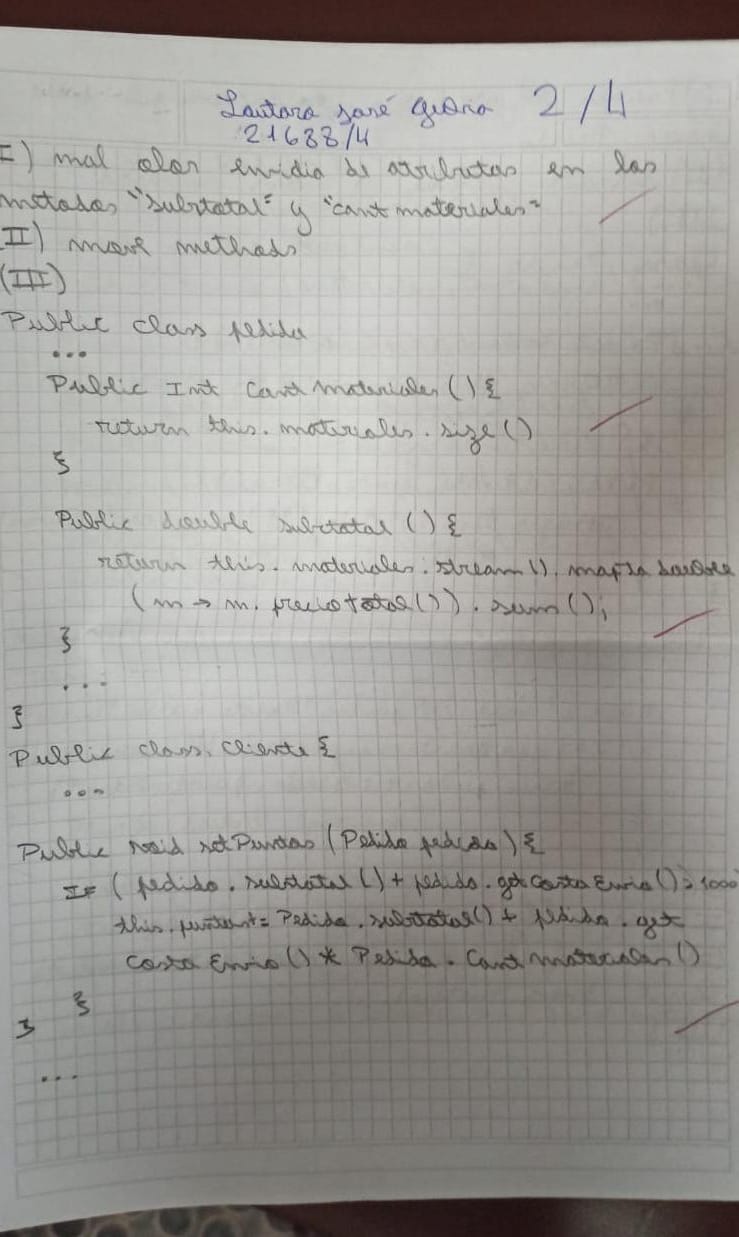 Lautaro José 2/4
21688/4
I) mal olor envidia de atributos en los
metodos "subtotal" y "cant materiales"
II) move methods
(III)
Public class pedido
...
Public Int Cant materiales () {
return this. materiales. size ()
}
Public double subtotal () {
return this. materiales. stream (). mapToDouble
(m → m. precio total ()). sum ();
}
...
}
Public class. Cliente {
...
Public void setPuntos (Pedido pedido) {
IF (pedido. subtotal () + pedido. get Costo Envio () > 1000
this. puntos+= Pedido. subtotal () + pedido. get
Costo Envio () * Pedido. Cant materiales ()
}
}
...